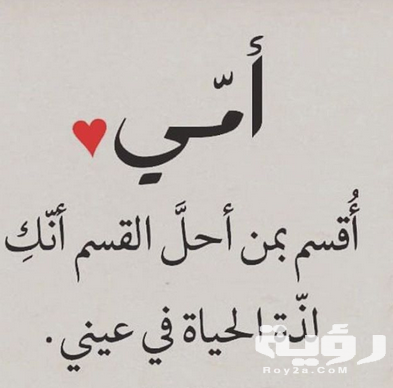 أمّي
أُقسم بمن أحلَّ القسم أنّكِ
لذّة الحياة في عيني.
رؤية
Roy2a.CoM